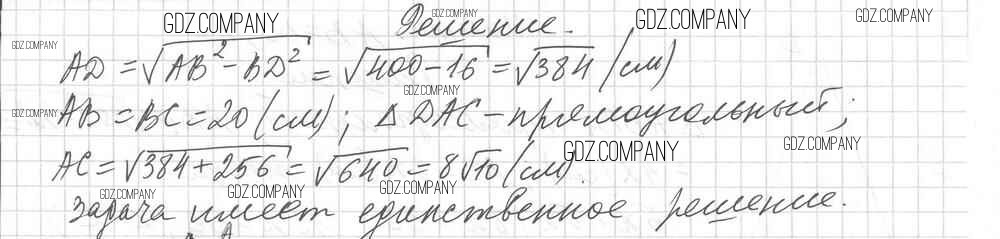 GDZ.COMPANY GDZ.COMPANY GDZ.COMPANY GDZ.COMPANY
Решение.
GDZ.COMPANY
AD = √(AB² - BD²) = √(400-16) = √384 (см)
GDZ.COMPANY
GDZ.COMPANY AB = BC = 20 (см); Δ DAC - прямоугольный;
AC = √(384+256) = √640 = 8√10 (см).
GDZ.COMPANY GDZ.COMPANY
GDZ.COMPANY GDZ.COMPANY GDZ.COMPANY
Задача имеет единственное решение.
A